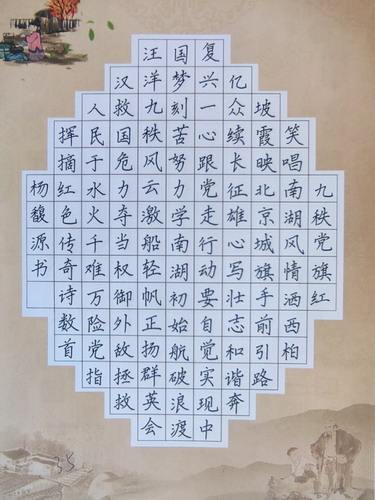 九秩党旗红
笑唱南湖风情洒西柏
坡霞映北京城旗手前引路
亿众续长征雄心写壮志和谐奔
复兴一心跟党走行动要自觉实现中
国梦刻苦努力学南湖初始航破浪渡
汪洋九秩风云激船轻帆正扬群英会
汉救国危力夺当权御外敌拯救
人民于水火千难万险党指
挥摘红色传奇诗数首
杨馥源书
35